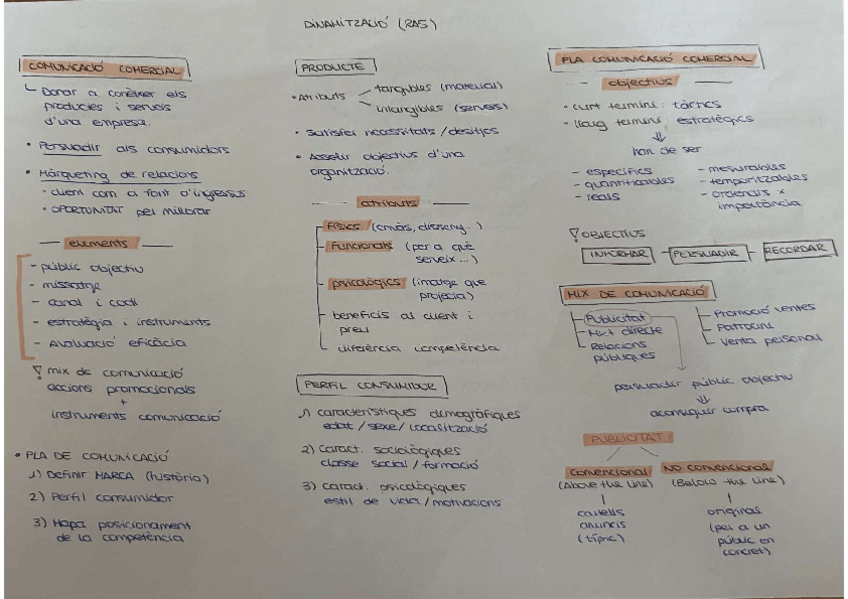 DINAMITZACIÓ (RA5)
COMUNICACIÓ COMERCIAL
Donar a conèixer els
productes i serveis
d'una empresa.
• Persuadir als consumidors
• Màrqueting de relacions
- client com a font d'ingressos
• OPORTUNITAT per millorar
elements
- públic objectiu
- missatge
- canal i codi
- estratègia i instruments
- Avaluació eficàcia
! mix de comunicació
accions promocionals
+
instruments comunicació
• PLA DE COMUNICACIÓ
1) Definir MARCA (història)
2) Perfil consumidor
3) Mapa posicionament
de la competència
PRODUCTE
• Atributs
tangibles (material)
intangibles (serveis)
• Satisfer necessitats / desitjos
• Assolir objectius d'una
organització.
atributs
Físics (envàs, disseny..)
Funcionals (per a què
serveix...)
psicològics (imatge que
projecta)
beneficis al client i
preu
diferència competència
PERFIL CONSUMIDOR
1) característiques demogràfiques
edat / sexe / localització
2) Caract. sociològiques
classe social / formació
3) caract. psicològiques
estil de vida / motivacions
PLA COMUNICACIÓ COMERCIAL
objectius
• curt termini: tàctics
• llarg termini: estratègics
⇓
han de ser
- específics
- quantificables
- reals
- mesurables
- temporitzables
- ordenats x
importància
! OBJECTIUS
INFORMAR - PERSUADIR - RECORDAR
MIX DE COMUNICACIÓ
Publicitat
Mkt directe
Relacions
públiques
Promoció ventes
Patrocini
Venta personal
persuadir públic objectiu
⇓
aconseguir compra
PUBLICITAT
Convencional
(Above the line)
cartells
anuncis
(típic)
NO convencional
(Below the line)
original
(per a un
públic en
concret)